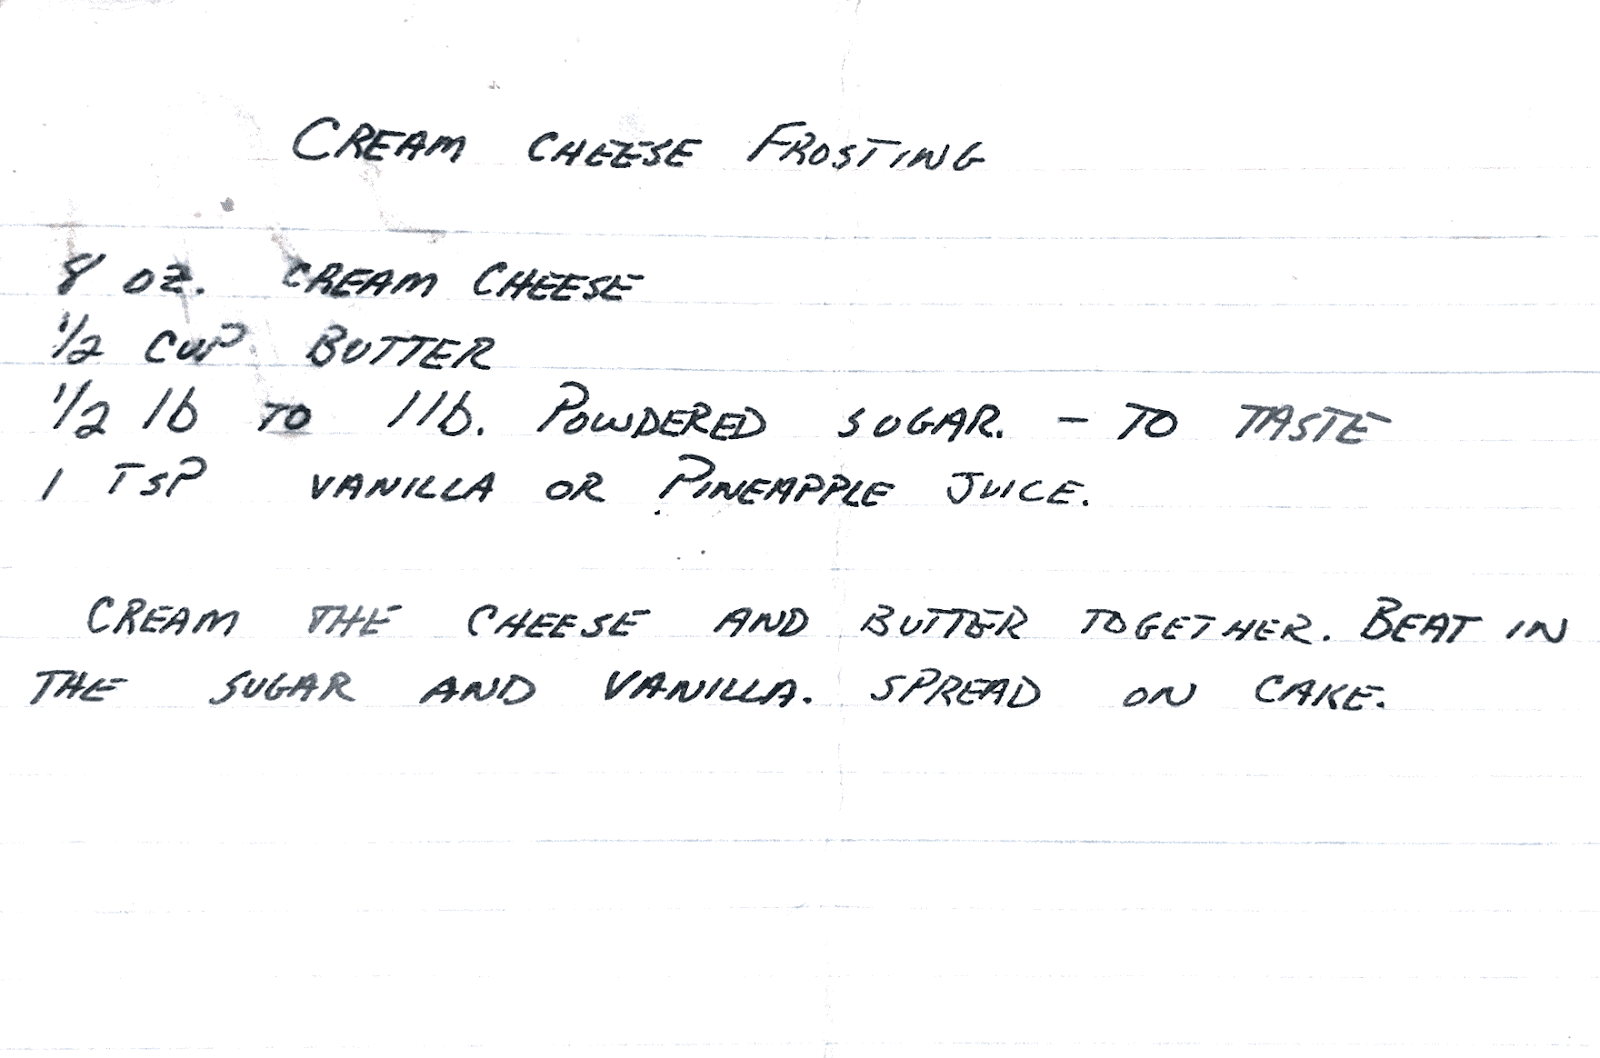 CREAM CHEESE FROSTING
8 OZ. CREAM CHEESE
1/2 CUP BUTTER
1/2 lb TO 1 lb. POWDERED SUGAR. - TO TASTE
1 TSP VANILLA OR PINEAPPLE JUICE.
CREAM THE CHEESE AND BUTTER TOGETHER. BEAT IN
THE SUGAR AND VANILLA. SPREAD ON CAKE.